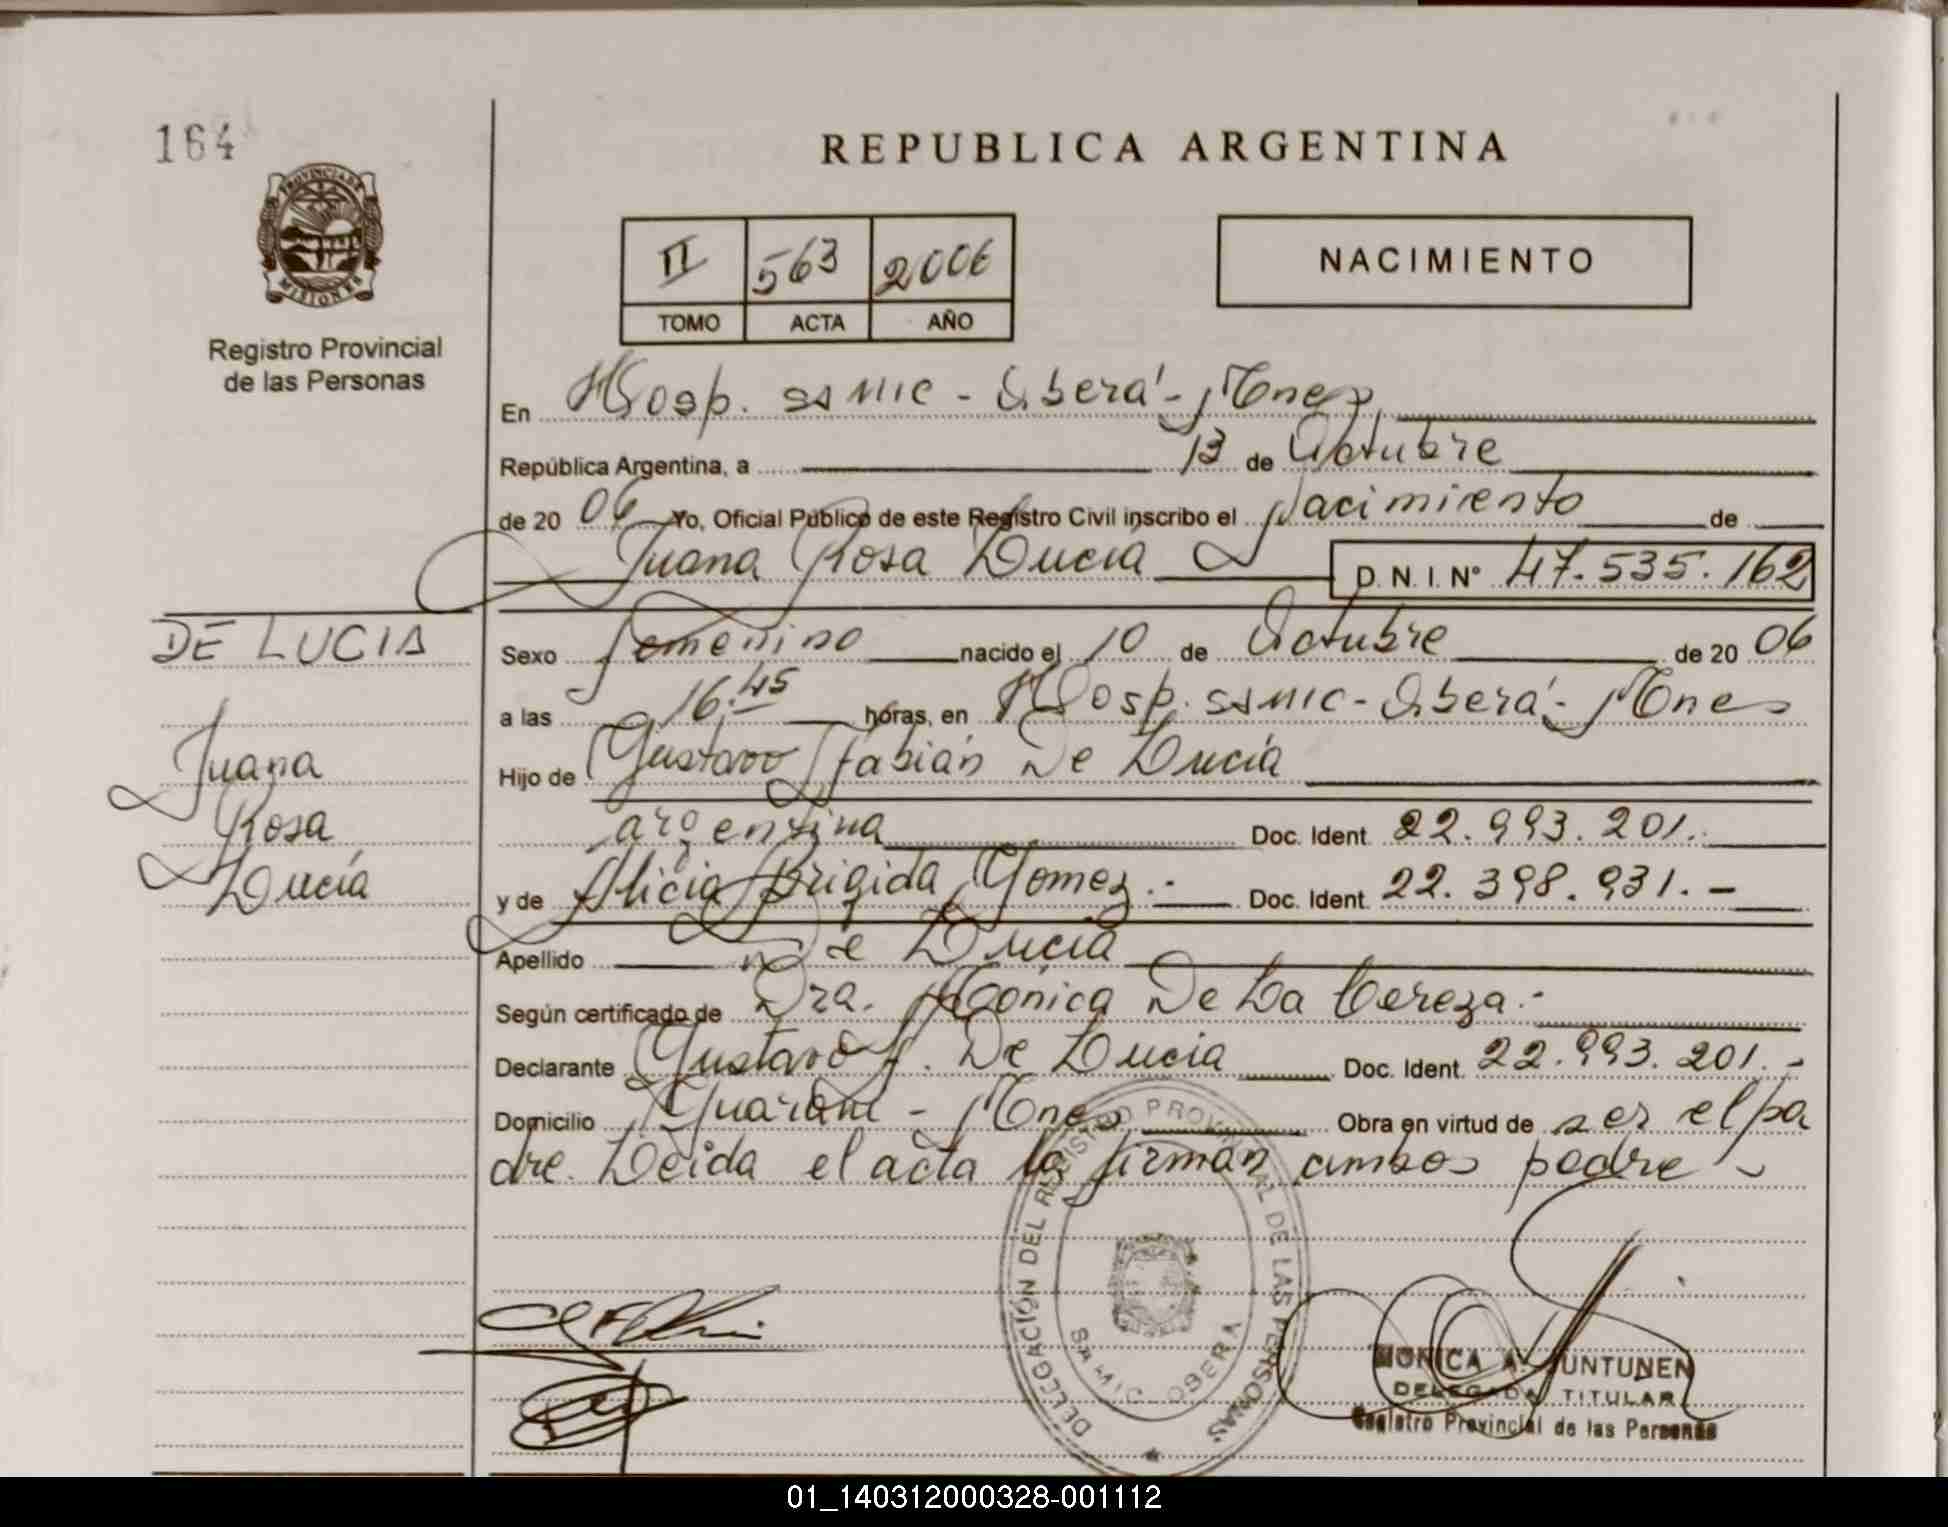 164
REPUBLICA ARGENTINA
PROVINCIA DE
MISIONES
Registro Provincial
de las Personas
II 563 2006
TOMO ACTA AÑO
NACIMIENTO
En Hosp. SAMIC - Oberá - Mnes
República Argentina, a 13 de Octubre
de 20 06 Yo, Oficial Público de este Registro Civil inscribo el Nacimiento de
Juana Rosa Lucía D.N.I. Nº 47.535.162
DE LUCIA
Juana
Rosa
Lucía
Sexo femenino nacido el 10 de Octubre de 20 06
a las 16.45 horas, en Hosp. SAMIC - Oberá - Mnes
Hijo de Gustavo Fabián De Lucía
argentina Doc. Ident. 22.993.201.
y de Alicia Brigida Gomez.- Doc. Ident. 22.398.931.-
Apellido De Lucía
Según certificado de Dra. Mónica De La Cereza.-
Declarante Gustavo F. De Lucia Doc. Ident. 22.993.201.-
Domicilio Guaraní - Mnes Obra en virtud de ser el pa
dre. Leida el acta la firman ambos padres
DELEGACIÓN DEL REGISTRO PROVINCIAL DE LAS PERSONAS
SAMIC OBERA
MONICA A. JUNTUNEN
DELEGADA TITULAR
Registro Provincial de las Personas
01_140312000328-001112